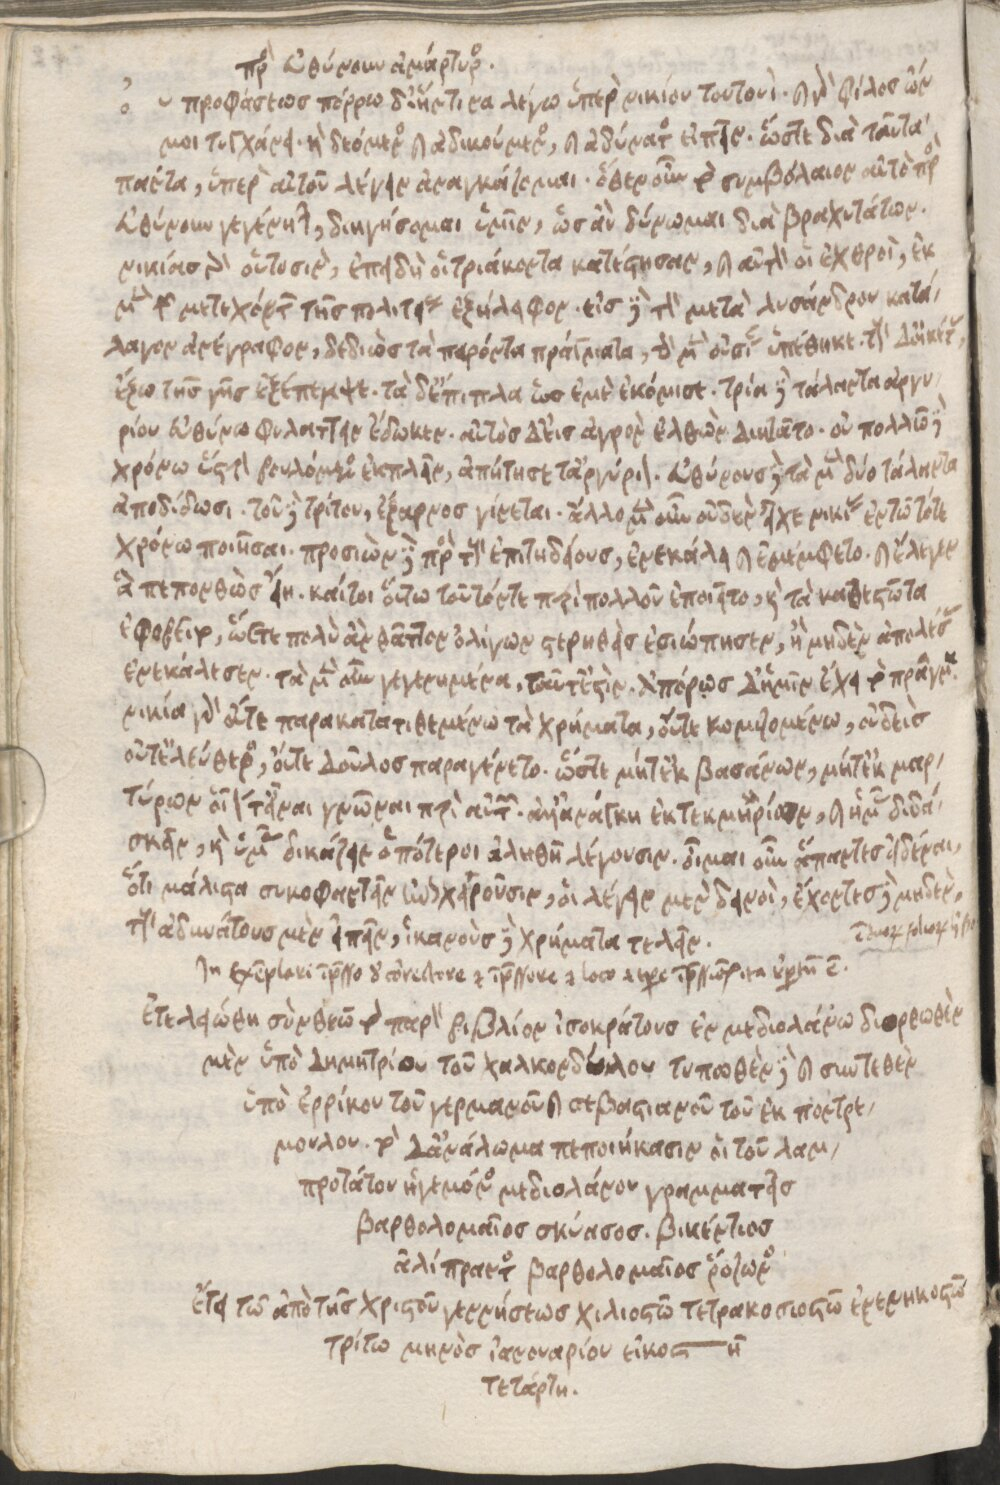 πρὸς Εὐθύνουν ἀμάρτυρος.
Οὐ προφάσεως πόρρω δεῖ ἥντινα λέγω ὑπὲρ νικίου τουτουί. καὶ γὰρ φίλος ὤν
μοι τυγχάνει. καὶ δεόμενος καὶ ἀδικούμενος, καὶ ἀδύνατος εἰπεῖν. ὥστε διὰ ταῦτα
πάντα, ὑπὲρ αὐτοῦ λέγειν ἀναγκάζομαι. ὅθεν οὖν τὸ συμβόλαιον αὐτῷ πρὸς
εὐθύνουν γεγένηται, διηγήσομαι ὑμῖν, ὡς ἂν δύνωμαι διὰ βραχυτάτων.
νικίας γὰρ οὑτοσὶν, ἐπειδὴ οἱ τριάκοντα κατέστησαν, καὶ αὐτὸν οἱ ἐχθροὶ, ἐκ
μὲν τῶν μετεχόντων τῆς πολιτείας ἐξήλειφον. εἰς δὲ τὸν μετὰ λυσάνδρου κατά,
λογον ἀνέγραφον, δεδιὼς τὰ παρόντα πράγματα, τὴν μὲν οὐσίαν ὑπέθηκε. τοὺς δ' οἰκέτας,
ἔξω τῆς γῆς ἐξέπεμψε. τὰ δ' ἔπιπλα ὡς ἐμὲ ἐκόμισε. τρία δὲ τάλαντα ἀργυ,
ρίου εὐθύνῳ φυλάττειν ἔδωκεν. αὐτὸς δ' εἰς ἀγρὸν ἐλθὼν διῃτᾶτο. οὐ πολλῷ δὲ
χρόνῳ ὕστερον βουλόμενος ἐκπλεῖν, ἀπῄτησε τἀργύριον. εὐθύνους δὲ τὰ μὲν δύο τάλαντα
ἀποδίδωσι. τοῦ δὲ τρίτου, ἔξαρνος γίνεται. ἄλλο μὲν οὖν οὐδὲν εἶχε νικίας ἐν τῷ τότε
χρόνῳ ποιῆσαι. προσιὼν δὲ πρὸς τοὺς ἐπιτηδείους, ἐνεκάλει καὶ ἐμέμφετο. καὶ ἔλεγεν
ἃ πεπονθὼς εἴη. καίτοι οὕτω τοῦτόν τε περὶ πολλοῦ ἐποιεῖτο, καὶ τὰ καθεστῶτα
ἐφοβεῖτο, ὥστε πολὺ ἂν θᾶττον ὀλίγων στερηθεὶς ἐσιώπησεν, ἢ μηδὲν ἀπολέσας
ἐνεκάλεσεν. τὰ μὲν οὖν γεγενημένα, ταῦτ' ἐστίν. ἀπόρως δ' ἡμῖν ἔχει τὸ πρᾶγμα.
νικίᾳ γὰρ οὔτε παρακατατιθεμένῳ τὰ χρήματα, οὔτε κομιζομένῳ, οὐδεὶς
οὔτ' ἐλεύθερος, οὔτε δοῦλος παραγένετο. ὥστε μήτ' ἐκ βασάνων, μήτ' ἐκ μαρ,
τύρων οἷόν τ' εἶναι γνῶναι περὶ αὐτῶν. ἀλλ' ἀνάγκη ἐκ τεκμηρίων, καὶ ἡμᾶς διδά,
σκειν, καὶ ὑμᾶς δικάζειν ὁπότεροι ἀληθῆ λέγουσιν. οἶμαι οὖν ἅπαντες εἰδέναι,
ὅτι μάλιστα συκοφαντεῖν ἐπιχειροῦσιν, οἱ λέγειν μὲν δεινοὶ, ἔχοντες δὲ μηδὲν,
τοὺς ἀδυνάτους μὲν εἰπεῖν, ἱκανοὺς δὲ χρήματα τελεῖν.
Ἐτελειώθη σὺν θεῷ τὸ παρὸν βιβλίον ἰσοκράτους ἐν μεδιολάνῳ διορθωθὲν
μὲν ὑπὸ Δημητρίου τοῦ χαλκονδύλου τυπωθὲν δὲ καὶ συντεθὲν
ὑπὸ ἐρρίκου τοῦ γερμανοῦ καὶ σεβαστιανοῦ τοῦ ἐκ ποντρε,
μούλου. τὸ δ' ἀνάλωμα πεποιήκασιν οἱ τοῦ λαμ,
προτάτου ἡγεμόνος μεδιολάνου γραμματεῖς
βαρθολομαῖος σκύασος. βικέντιος
ἀλίπραντος βαρθολομαῖος ῥόζωνος
ἔτει τῷ ἀπὸ τῆς χριστοῦ γεννήσεως χιλιοστῷ τετρακοσιοστῷ ἐνενηκοστῷ
τρίτῳ μηνὸς ἰανουαρίου εἰκοστῇ
τετάρτῃ.